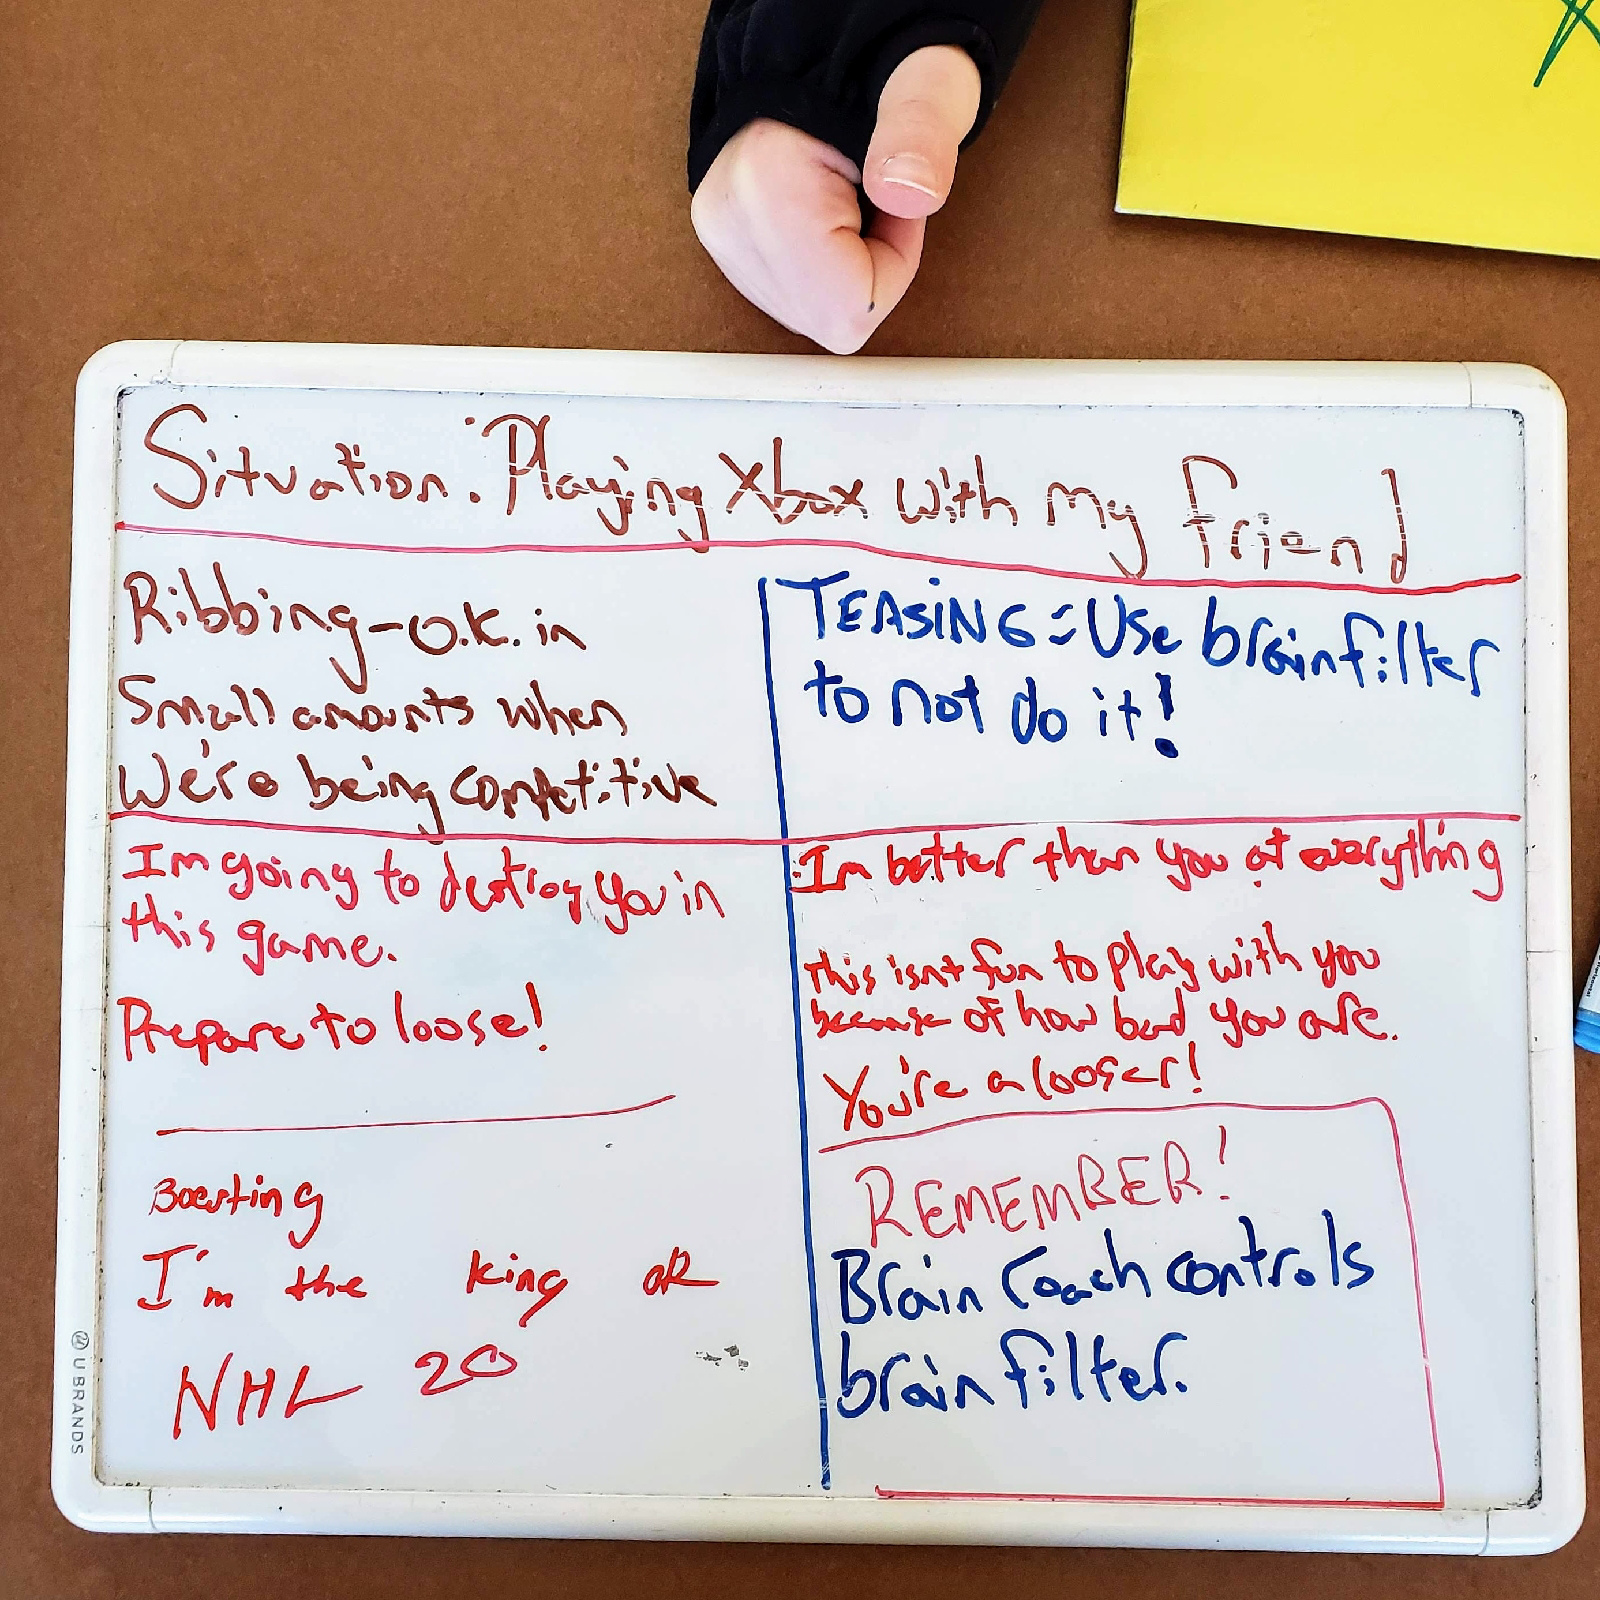 Situation: Playing Xbox with my friend
Ribbing-O.K. in
Small amounts when
We're being competitive
TEASING = Use brain filter
to not do it!
Im going to destroy you in
this game.
Prepare to loose!
Im better than you at everything
this isnt fun to play with you
because of how bad you are.
You're a looser!
Boasting
I'm the king of
NHL 20
REMEMBER!
Brain Coach controls
brain filter.
UBRANDS